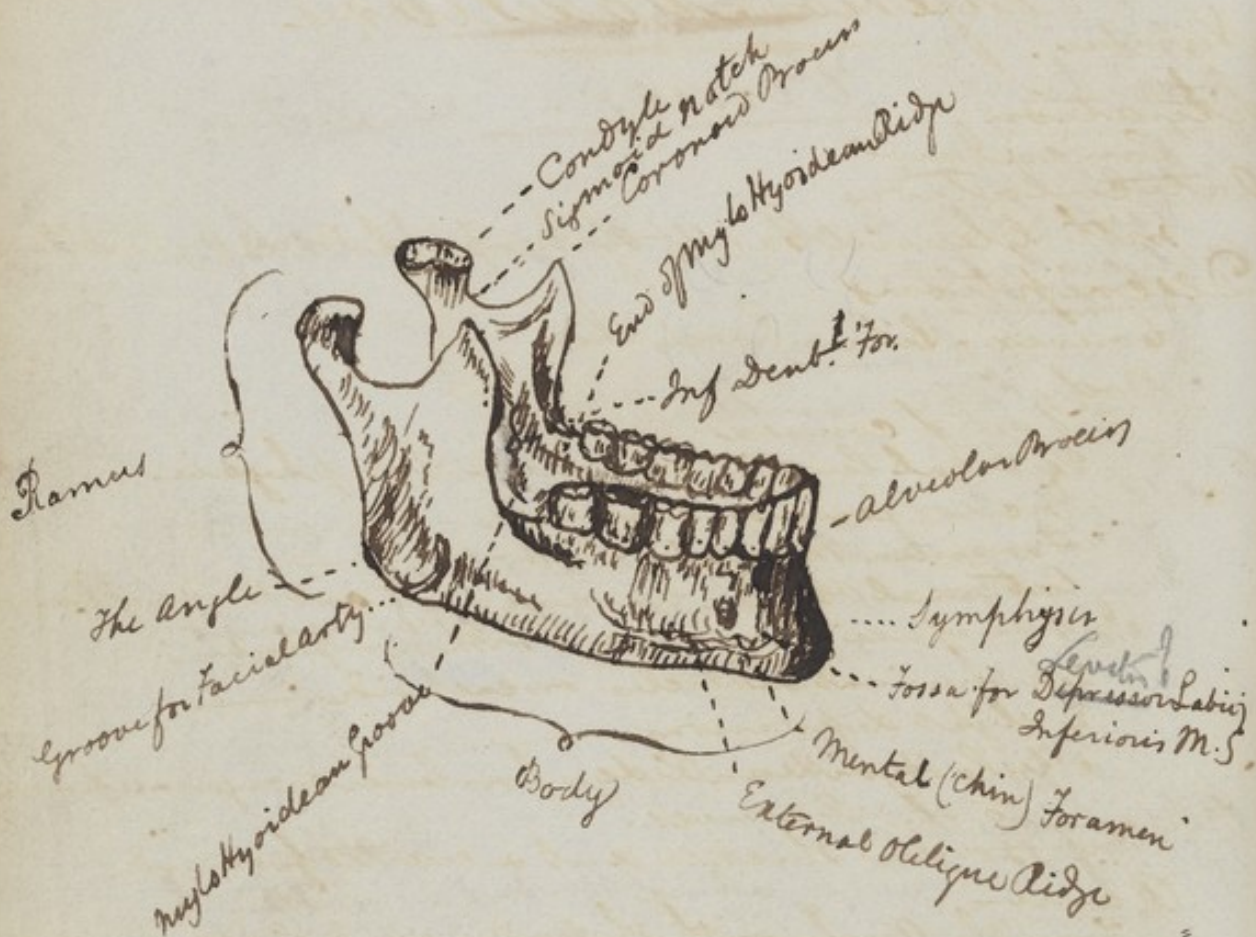 Condyle
Sigmoid Notch
Coronoid Process
End of Mylo Hyoidean Ridge
Inf Dent.l For.
Alveolar Process
Ramus
The Angle
Groove for Facial Arty
Symphysis
Levator?
Fossa for Depressor Labii
Inferioris M.S
Mylo Hyoidean Groove
Body
Mental (Chin) Foramen
External Oblique Ridge